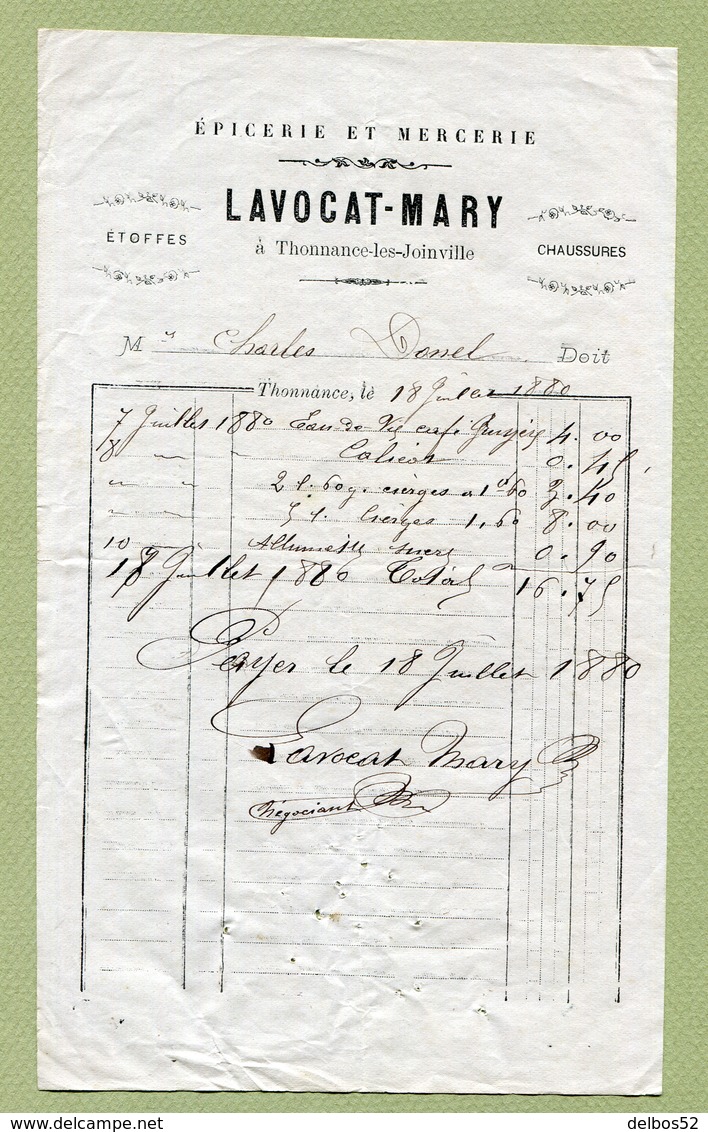 ÉPICERIE ET MERCERIE
LAVOCAT-MARY
ÉTOFFES
à Thonnance-les-Joinville
CHAUSSURES
Mr Charles Doit
Thonnance, le 18 Juillet 1880
7 Juillet 1880 Eau de Vie café Gruyère 4.00
8 " " Calicot 0.45
" " 2 l. 60 g. cierges a 1f60 3.40
" " 5 l. cierges 1.60 8.00
10 " Allumette sucre 0.90
18 Juillet 1880 Total 16.75
Payer le 18 Juillet 1880
Lavocat Mary
Négociant
delbos52